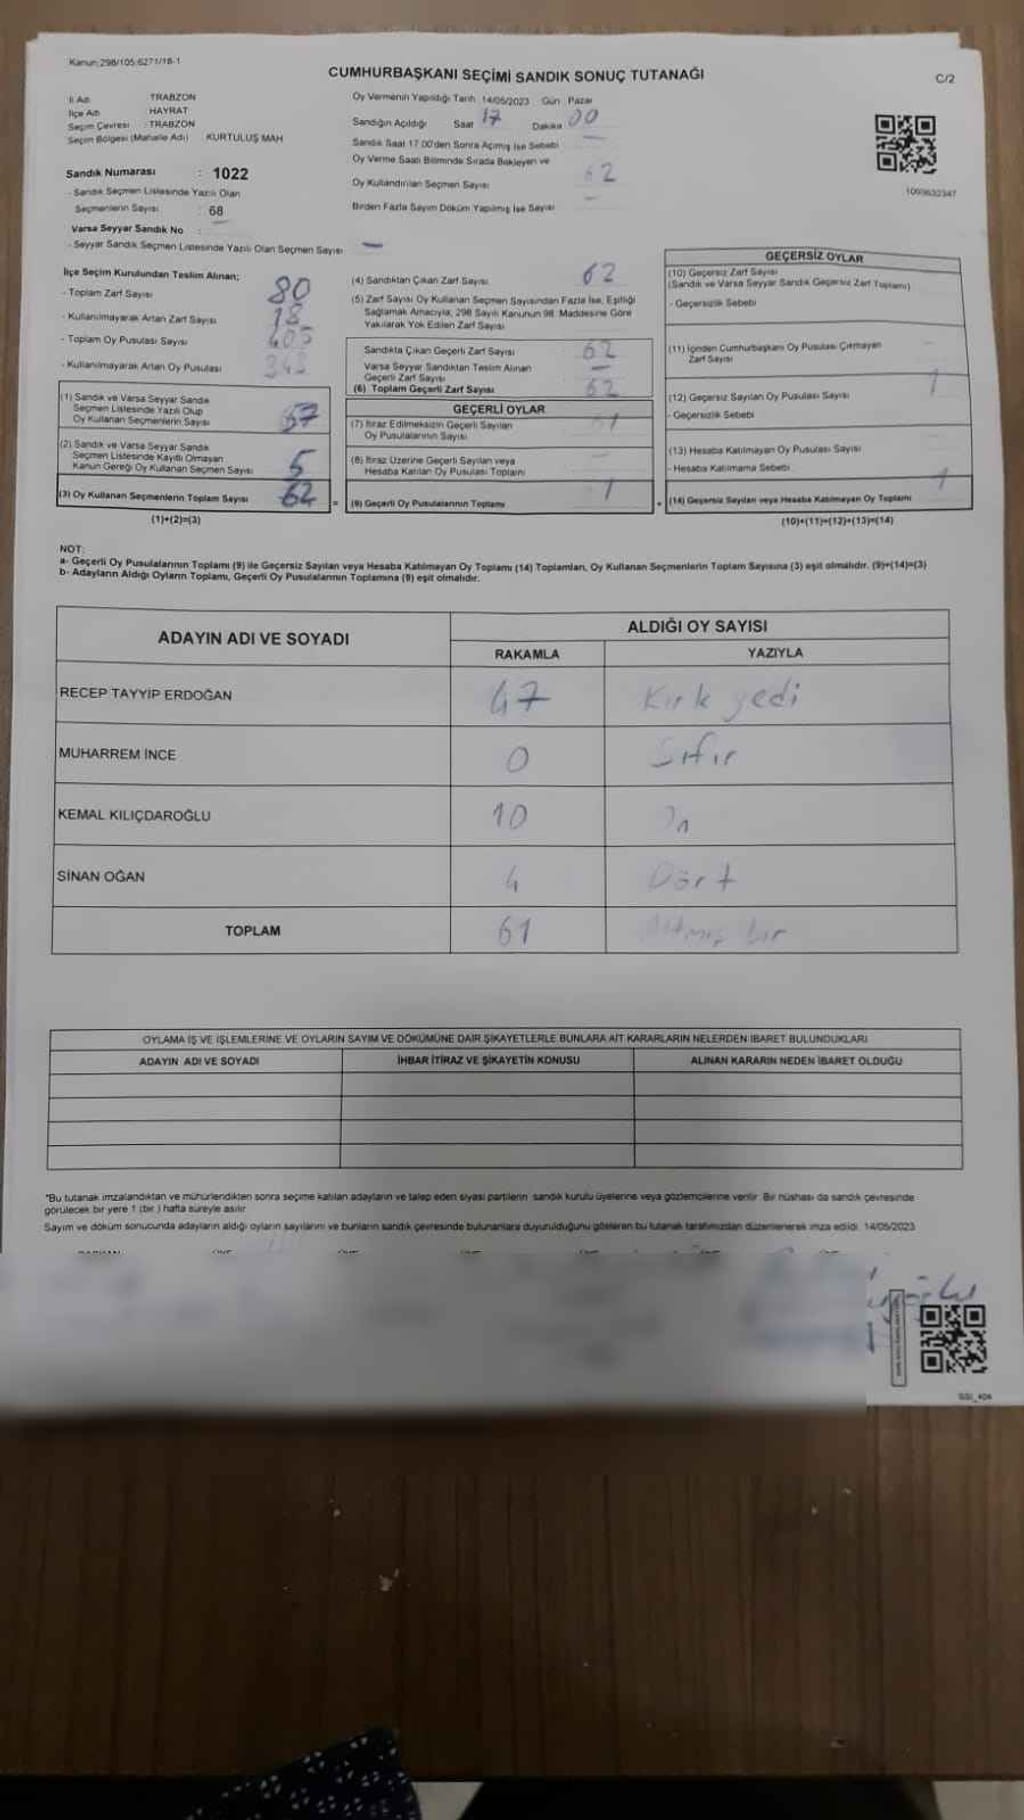 Kanun:298/105;6271/18-1
CUMHURBAŞKANI SEÇİMİ SANDIK SONUÇ TUTANAĞI
C/2
İl Adı TRABZON
İlçe Adı HAYRAT
Seçim Çevresi : TRABZON
Seçim Bölgesi (Mahalle Adı) KURTULUŞ MAH
Sandık Numarası : 1022
- Sandık Seçmen Listesinde Yazılı Olan
Seçmenlerin Sayısı : 68
Varsa Seyyar Sandık No
- Seyyar Sandık Seçmen Listesinde Yazılı Olan Seçmen Sayısı —
Oy Vermenin Yapıldığı Tarih 14/05/2023 Gün Pazar
Sandığın Açıldığı Saat 17 Dakika 00
Sandık Saat 17.00'den Sonra Açılmış İse Sebebi
Oy Verme Saati Bitiminde Sırada Bekleyen ve
Oy Kullandırılan Seçmen Sayısı 62
Birden Fazla Sayım Döküm Yapılmış İse Sayısı —
1009632347
İlçe Seçim Kurulundan Teslim Alınan;
- Toplam Zarf Sayısı 80
- Kullanılmayarak Artan Zarf Sayısı 18
- Toplam Oy Pusulası Sayısı 405
- Kullanılmayarak Artan Oy Pusulası 343
(1) Sandık ve Varsa Seyyar Sandık
Seçmen Listesinde Yazılı Olup
Oy Kullanan Seçmenlerin Sayısı 57
(2) Sandık ve Varsa Seyyar Sandık
Seçmen Listesinde Kayıtlı Olmayan
Kanun Gereği Oy Kullanan Seçmen Sayısı 5
(3) Oy Kullanan Seçmenlerin Toplam Sayısı 62
(1)+(2)=(3)
(4) Sandıktan Çıkan Zarf Sayısı 62
(5) Zarf Sayısı Oy Kullanan Seçmen Sayısından Fazla İse, Eşitliği
Sağlamak Amacıyla, 298 Sayılı Kanunun 98. Maddesine Göre
Yakılarak Yok Edilen Zarf Sayısı
Sandıkta Çıkan Geçerli Zarf Sayısı 62
Varsa Seyyar Sandıktan Teslim Alınan
Geçerli Zarf Sayısı —
(6) Toplam Geçerli Zarf Sayısı 62
GEÇERLİ OYLAR
(7) İtiraz Edilmeksizin Geçerli Sayılan
Oy Pusulalarının Sayısı
(8) İtiraz Üzerine Geçerli Sayılan veya
Hesaba Katılan Oy Pusulası Toplamı
= (9) Geçerli Oy Pusulalarının Toplamı
GEÇERSİZ OYLAR
(10) Geçersiz Zarf Sayısı
(Sandık ve Varsa Seyyar Sandık Geçersiz Zarf Toplamı)
- Geçersizlik Sebebi
(11) İçinden Cumhurbaşkanı Oy Pusulası Çıkmayan
Zarf Sayısı
(12) Geçersiz Sayılan Oy Pusulası Sayısı 1
- Geçersizlik Sebebi
(13) Hesaba Katılmayan Oy Pusulası Sayısı
- Hesaba Katılmama Sebebi
+ (14) Geçersiz Sayılan veya Hesaba Katılmayan Oy Toplamı 1
(10)+(11)+(12)+(13)=(14)
NOT:
a- Geçerli Oy Pusulalarının Toplamı (9) ile Geçersiz Sayılan veya Hesaba Katılmayan Oy Toplamı (14) Toplamları, Oy Kullanan Seçmenlerin Toplam Sayısına (3) eşit olmalıdır. (9)+(14)=(3)
b- Adayların Aldığı Oyların Toplamı, Geçerli Oy Pusulalarının Toplamına (9) eşit olmalıdır.
ADAYIN ADI VE SOYADI ALDIĞI OY SAYISI
RAKAMLA YAZIYLA
RECEP TAYYİP ERDOĞAN 47 Kırk yedi
MUHARREM İNCE 0 Sıfır
KEMAL KILIÇDAROĞLU 10 On
SİNAN OĞAN 4 Dört
TOPLAM 61 Altmış bir
OYLAMA İŞ VE İŞLEMLERİNE VE OYLARIN SAYIM VE DÖKÜMÜNE DAİR ŞİKAYETLERLE BUNLARA AİT KARARLARIN NELERDEN İBARET BULUNDUKLARI
ADAYIN ADI VE SOYADI İHBAR İTİRAZ VE ŞİKAYETİN KONUSU ALINAN KARARIN NEDEN İBARET OLDUĞU
*Bu tutanak imzalandıktan ve mühürlendikten sonra seçime katılan adayların ve talep eden siyasi partilerin sandık kurulu üyelerine veya gözlemcilerine verilir. Bir nüshası da sandık çevresinde
görülecek bir yere 1 (bir ) hafta süreyle asılır.
Sayım ve döküm sonucunda adayların aldığı oyların sayılarını ve bunların sandık çevresinde bulunanlara duyurulduğunu gösteren bu tutanak tarafımızdan düzenlenerek imza edildi. 14/05/2023